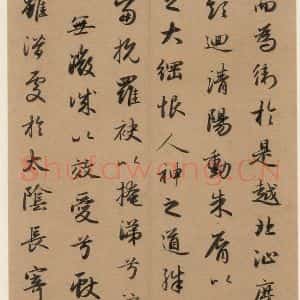 而為衛於是越北沚度
領迴清陽動朱脣以
之大綱恨人神之道殊
當抗羅袂以掩涕兮
無微誠以效愛兮獻
雖潛處於太陰長寄
Shufawang.CN